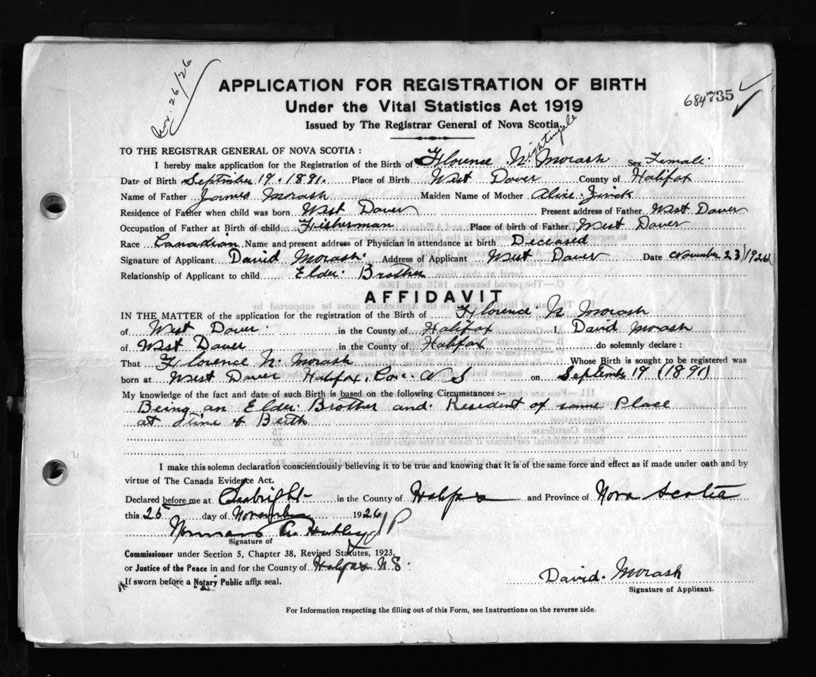 Nov 26/26
APPLICATION FOR REGISTRATION OF BIRTH
Under the Vital Statistics Act 1919
684735
Issued by The Registrar General of Nova Scotia.
Nightingale
TO THE REGISTRAR GENERAL OF NOVA SCOTIA :
I hereby make application for the Registration of the Birth of Florence N. Morash Sex Female
Date of Birth September 19. 1891. Place of Birth West Dover County of Halifax
Name of Father James Morash Maiden Name of Mother Alice Zinck
Residence of Father when child was born West Dover Present address of Father West Dover
Occupation of Father at Birth of child Fisherman Place of birth of Father West Dover
Race Canadian Name and present address of Physician in attendance at birth Deceased
Signature of Applicant David Morash Address of Applicant West Dover Date November 23/1926
Relationship of Applicant to child Elder Brother
AFFIDAVIT
IN THE MATTER of the application for the registration of the Birth of Florence N Morash
of West Dover. in the County of Halifax I, David Morash
of West Dover in the County of Halifax do solemnly declare :
That Florence N. Morash Whose Birth is sought to be registered was
born at West Dover Halifax. Co. N S on September 19 (1891)
My knowledge of the fact and date of such Birth is based on the following Circumstances :-
Being an Elder Brother and Resident of same Place
at time of Berth
I make this solemn declaration conscientiously believing it to be true and knowing that it is of the same force and effect as if made under oath and by
virtue of The Canada Evidence Act.
Declared before me at Seabright in the County of Halifax and Province of Nova Scotia
this 25 day of November 1926
Norman A. Hubley JP
Signature of
Commissioner under Section 5, Chapter 38, Revised Statutes, 1923,
or Justice of the Peace in and for the County of Halifax N.S.
If sworn before a Notary Public affix seal.
David. Morash
Signature of Applicant.
For Information respecting the filling out of this Form, see Instructions on the reverse side.